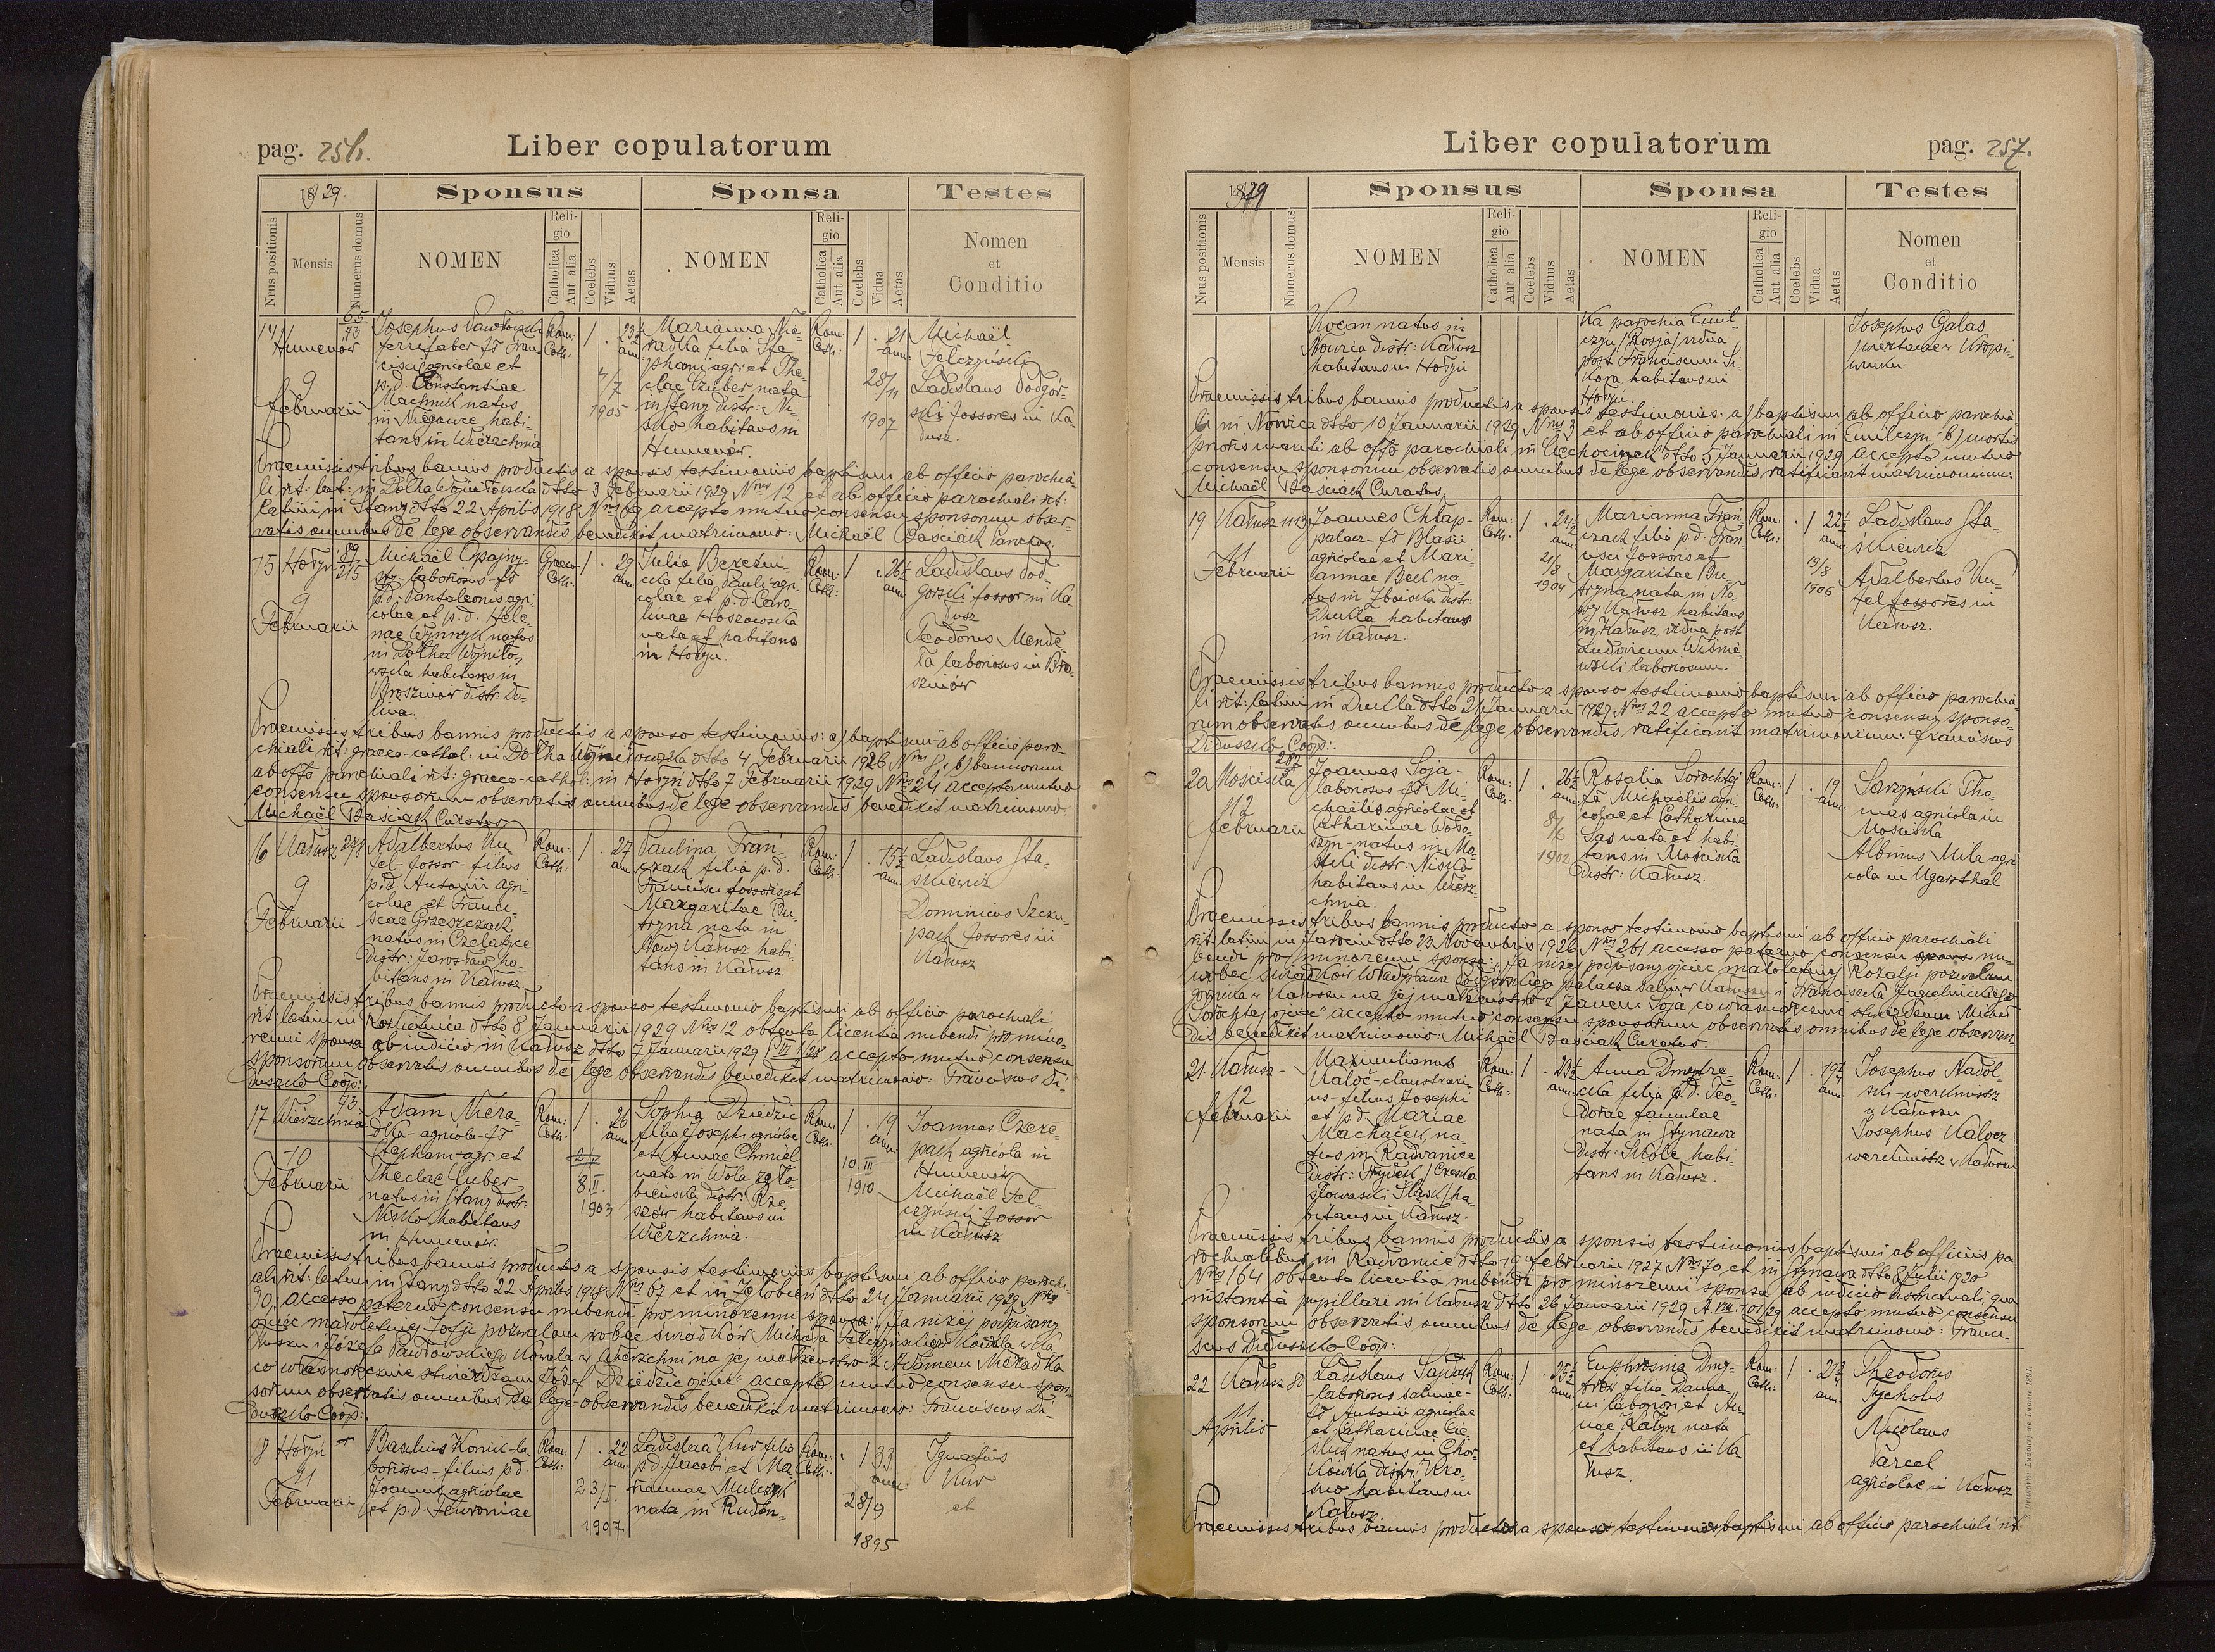 pag. 256.
Liber copulatorum
1929.
Sponsus
Sponsa
Testes
Nrus positionis
Mensis
Numerus domus
NOMEN
Religio
Catholica
Aut alia
Coelebs
Viduus
Aetas
NOMEN
Religio
Catholica
Aut alia
Coelebs
Vidua
Aetas
Nomen
et
Conditio
14
Humenów
65
73
9
Februarii
Josephus Pawłowski
ferrifaber fs Fran-
cisci agricolae et
p.d. Constantiae
Machnik natus
in Niegowce habi-
tans in Wierzchnia
Rom:
Cath:
1 . 23½
ann:
7/7
1905
Marianna Nie-
radka filia Ste-
phani agr: et The-
clae Czuber nata
in Stany distr: Ni-
sko habitans in
Humenów.
Rom:
Cath:
1 . 21
ann:
28/11
1907
Michaël
Felczyński
Ladislaus Podgór-
ski fossores in Ka-
łusz.
Praemissis tribus bannis productis a sponsis testimoniis baptismi ab officio parochia-
li rit: lat: in Dołha Wojniłowska dtto 3 Februarii 1929 Nrus 12 et ab officio parochiali rit:
latini in Stany dtto 22 Aprilis 1918 Nrus 69 accepto mutuo consensu sponsorum obser-
vatis omnibus de lege observandis benedixit matrimonio: Michaël Baściak Parochus.
15
Hołyń
89
215
9
Februarii
Michaël Opajny-
laboriosus - fs
p.d. Pantaleonis agri-
colae et p.d. Hele-
nae Wynnyk natus
in Dołha Wojniło-
wska habitans in
Broszniów distr: Do-
lina.
Graeco
Cath:
1 . 29
ann
Julia Berezni-
cka filia Pauli agri-
colae et p.d. Caro-
linae Hoszowska
nata et habitans
in Hołyń.
Rom:
Cath:
1 . 26½
ann:
Ladislaus Pod-
górski fossor in Ka-
łusz
Teodorus Mende-
la laboriosus in Bro-
szniów
Praemissis tribus bannis productis a sponso testimoniis: a) baptismi ab officio paro-
chiali rit: graeco-cathol: in Dołha Wojniłowska dtto 4 Februarii 1926 Nrus b) bannorum
ab offo parochiali rit: graeco-cathol: in Hołyń dtto 7 Februarii 1929 Nrus 24 accepto mutuo
consensu sponsorum observatis omnibus de lege observandis benedixit matrimonio:
Michaël Baściak Curatus
16
Kałusz
9
Februarii
Adalbertus Ku-
fel - fossor - filius
p.d. Antonii agri-
colae et Franci-
scae Grzeszczak
natus in Czelatyce
distr: Jarosław ha-
bitans in Kałusz
Rom:
Cath:
1 . 27
ann
Paulina Fran-
czak filia p.d.
Francisci fossoris et
Margaritae Bu-
tryna nata in
Nowy Kałusz habi-
tans in Kałusz.
Rom:
Cath:
1 . 15½
ann:
Ladislaus Sta-
śkiewicz
Dominicus Szcku-
pach fossores in
Kałusz
Praemissis tribus bannis producto a sponso testimonio baptismi ab officio parochiali
rit: latini in Rokietnica dtto 8 Januarii 1929 Nrus 12 obtenta licentia nubendi pro mino-
renni sponsa ab iudicio in Kałusz dtto 7 Januarii 1929 accepto mutuo consensu
sponsorum observatis omnibus de lege observandis benedixit matrimonio: Franciscus Di-
duszko Coop:.
17
Wierzchnia
73
10
Februarii
Adam Niera-
dka - agricola - fs
Stephani - agr: et
Theclae Czuber
natus in Stany distr:
Nisko habitans
in Humenów.
Rom:
Cath:
1 . 26
ann
8.II.
1903
Sophia Dziedzic
filia Josephi agricolae
et Annae Chmiel
nata in Wola zgło-
bieńska distr: Rze-
szów habitans in
Wierzchnia.
Rom:
Cath:
1 . 19
ann:
10.III
1910
Joannes Czere-
pach agricola in
Humenów
Michaël Fel-
czyński fossor
in Kałusz
Praemissis tribus bannis productis a sponsis testimoniis baptismi ab officio parochi-
ali rit: latini in Stany dtto 22 Aprilis 1918 Nrus 67 et in Zgłobień dtto 24 Januarii 1929 Nrus
90; accesso paterno consensu nubendi pro minorenni sponsa: „Ja niżej podpisany
ojciec małoletniej Zofji pozwalam wobec świadków Michała Felczyńskiego Kowala w Ka-
łuszu i Józefa Pawłowskiego Kowala w Wierzchni na jej małżeństwo z Adamem Nieradką
co własnoręcznie stwierdzam Józef Dziedzic ojciec" accepto mutuo consensu spon-
sorum observatis omnibus de lege observandis benedixit matrimonio: Franciscus Di-
duszko Coop:.
18
Hołyń
Februarii
Basilius Konik - la-
boriosus - filius p.d.
Joannis agricolae
et p.d. Fewroniae
Rom:
Cath:
1 . 22
ann:
23/I.
1907
Ladislaa Kuw filia
p.d. Jacobi et Ma-
riannae Mulczyk
nata in Ruden-
Rom:
Cath:
. 1 33
ann:
28/9
1895
Ignatius
Kuw
et
Liber copulatorum
pag. 257.
1929
Sponsus
Sponsa
Testes
Nrus positionis
Mensis
Numerus domus
NOMEN
Religio
Catholica
Aut alia
Coelebs
Viduus
Aetas
NOMEN
Religio
Catholica
Aut alia
Coelebs
Vidua
Aetas
Nomen
et
Conditio
Kocan natus in
Nowica distr: Kałusz
habitans in Hołyń
ka parochia Emil-
czyn /Rosja/ vidua
post Franciscum Si-
kora habitans in
Hołyń.
Josephus Galas
in Kropi-
wnik.
Praemissis tribus bannis productis a sponsis testimoniis: a) baptismi ab officio parochia-
li in Nowica dtto 10 Januarii 1929 Nrus 3 et ab officio parochiali in Emilczyn b) mortis
prioris mariti ab offo parochiali in Ciechocinek dtto 5 Januarii 1929 accepto mutuo
consensu sponsorum observatis omnibus de lege observandis ratificant matrimonium:
Michaël Baściak Curatus.
19
Kałusz 1113
11
Februarii
Joannes Chłap-
palacz - fs Blasii
agricolae et Mari-
annae Bek na-
tus in Zboiska distr:
Dukla habitans
in Kałusz.
Rom:
Cath:
1 . 24½
ann:
21/8
1904
Marianna Fran-
czak filia p.d. Fran-
cisci fossoris et
Margaritae Bu-
tryna nata in No-
wy Kałusz habitans
in Kałusz, vidua post
Ludovicum Wiśnie-
wski laboriosum.
Rom:
Cath:
. 1 22½
ann:
19/8
1906
Ladislaus Sta-
śkiewicz
Adalbertus Ku-
fel fossores in
Kałusz.
Praemissis tribus bannis producto a sponso testimonio baptismi ab officio parochia-
li rit: latini in Dukla dtto 21 Januarii 1929 Nrus 22 accepto mutuo consensu sponso-
rum observatis omnibus de lege observandis, ratificant matrimonium: Franciscus
Diduszko Coop:.
20
Mościska
282
12
Februarii
Joannes Soja-
laboriosus - fs Mi-
chaëlis agricolae et
Catharinae Woło-
szyn - natus in Mo-
stki distr: Nisko
habitans in Wierz-
chnia.
Rom:
Cath:
1 . 26½
ann:
8/6
1902
Rosalia Sorochtej
fa Michaëlis agri-
colae et Catharinae
Sas nata et habi-
tans in Mościska
distr: Kałusz.
Rom:
Cath:
1 . 19
ann:
Sarzyński Tho-
mas agricola in
Mościska
Albinus Mila agri-
cola in Ugarsthal
Praemissis tribus bannis producto a sponso testimonio baptismi ab officio parochiali
rit: latini in Jarocin dtto 23 Novembris 1926 Nrus 261 accesso paterno consensu nu-
bendi pro minorenni sponsa: „Ja niżej podpisany ojciec małoletniej Rozalji pozwalam
wobec świadków Władysława Podgórskiego palacza Salin w Kałuszu i Franciszka Jagielnickiego
górnika w Kałuszu na jej małżeństwo z Janem Soja co własnoręcznie stwierdzam Michał
Sorochtej ojciec" accepto mutuo consensu sponsorum observatis omnibus de lege observan-
dis benedixit matrimonio: Michaël Baściak Curatus.
21.
Kałusz -
12
Februarii
Maximilianus
Kaloč - claustrari-
us - filius Josephi
et p.d. Mariae
Machaček, na-
tus in Radvanice
distr: Frydek /Czesko
słowacki Śląsk/ ha-
bitans in Kałusz.
Rom:
Cath:
1 . 23½
ann:
Anna Dmytre-
cka filia p.d. Teo-
dorae famulae
nata in Stynawa
distr: Skole habi-
tans in Kałusz.
Rom:
Cath:
1 . 19¾
ann:
Josephus Nadol-
ski - werkmistrz
w Kałuszu
Josephus Kalocz
werkmistrz w Kałuszu
Praemissis tribus bannis productis a sponsis testimoniis baptismi ab officiis pa-
rochialibus in Radvanice dtto 19 Februarii 1927 Nrus 70, et in Stynawa dtto 8 Julii 1920
Nrus 164 obtenta licentia nubendi pro minorenni sponsa ab iudicio districtuali, qua
instantia pupillari in Kałusz dtto 26 Januarii 1929 A.VIII.101/29 accepto mutuo consensu
sponsorum observatis omnibus de lege observandis benedixit matrimonio: Franci-
scus Diduszko Coop:
22
Kałusz 80
11
Aprilis
Ladislaus Sapach
- laboriosus salinae -
fs Antonii agricolae
et Catharinae Cie-
ślik natus in Chor-
kówka distr: Kro-
sno habitans in
Kałusz.
Rom:
Cath:
1 . 25½
ann:
Euphrosina Dmy-
trów filia Danie-
lis laboriosi et An-
nae Kałyn nata
et habitans in Ka-
łusz.
Rom:
Cath:
1 . 21¾
ann.
Theodorus
Tycholis
Nicolaus
Parcel
agricolae in Kałusz
Praemissis tribus bannis producto a sponso testimonio baptismi ab officio parochiali rit